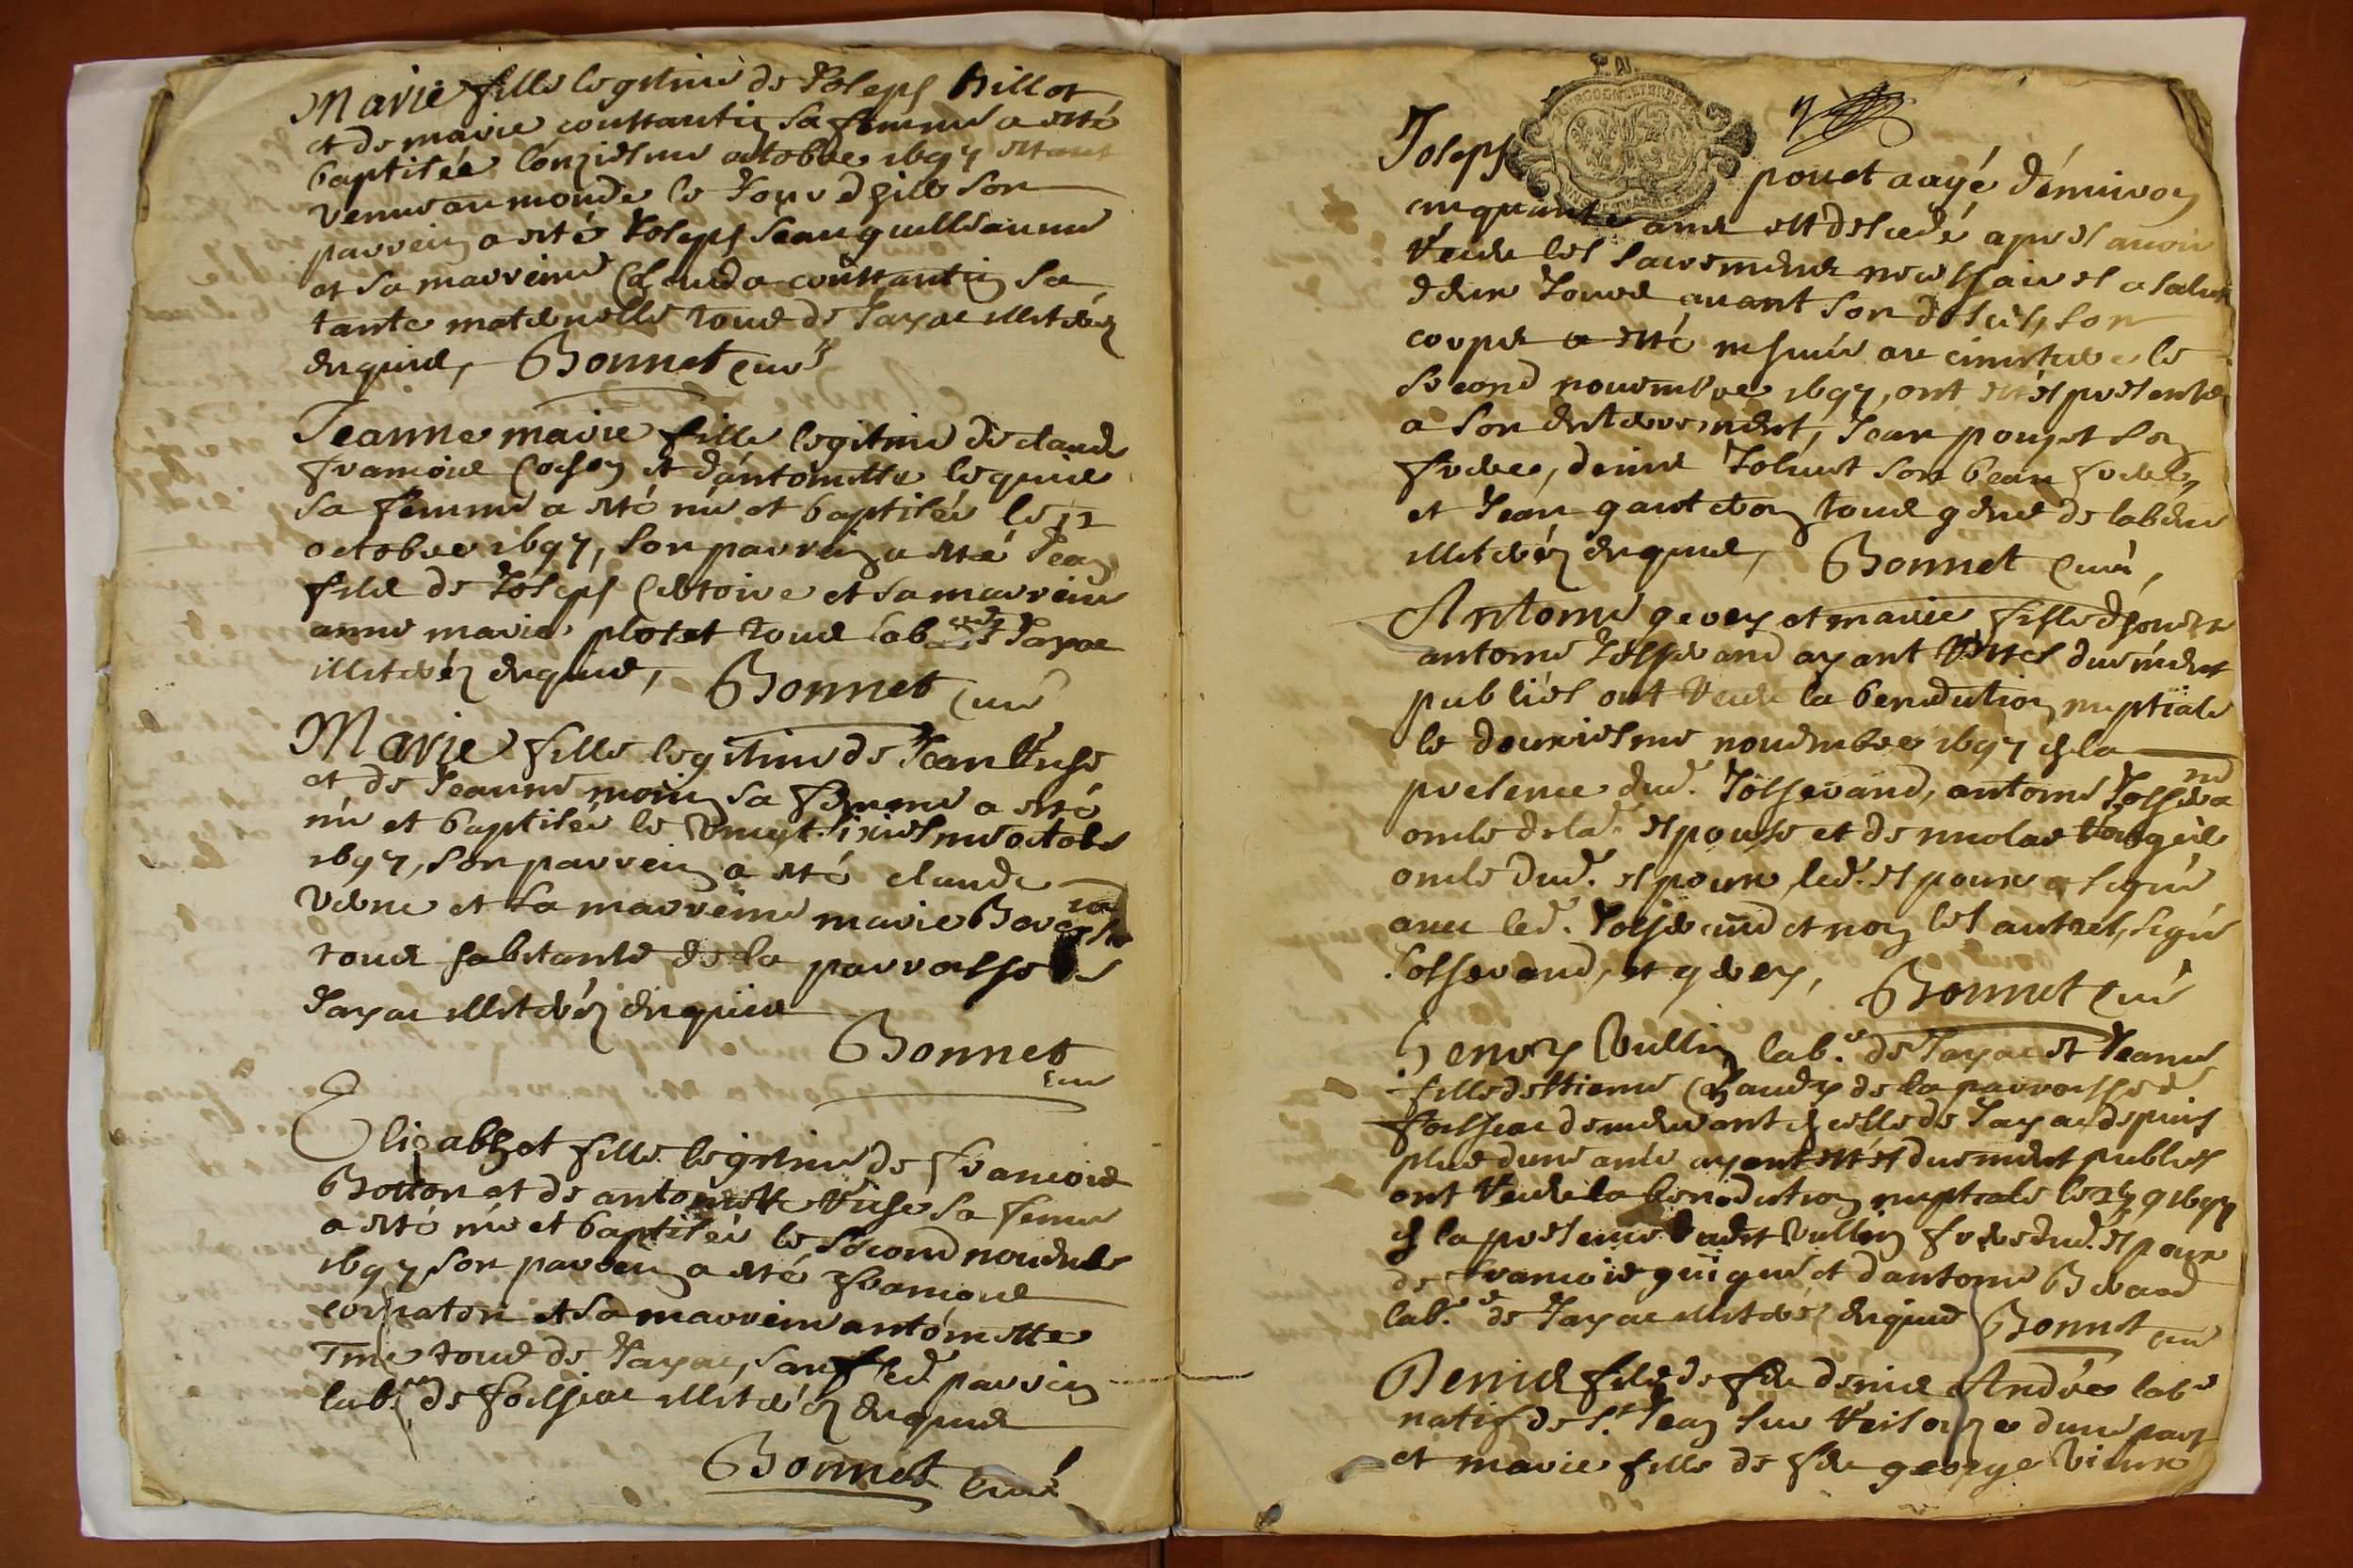 Marie fille legitime de Joseph Billot
et de marie constantin sa femme a esté
baptisée l'onziesme octobre 1697 estant
venue au monde le Jour d'hier son
parrein a esté Joseph Jean guillaume
et sa marreine Clauda constantin sa
tante maternelle tous de Jayac illiterez
enquis, Bonnet curé
Jeanne marie fille legitime de claude
francois Cochon et d'antoinette
sa femme a esté née et baptisée le 12
octobre 1697, son parrein a esté Jean
fils de Joseph et sa marreine
anne marie plotet tous lab.rs de Jayac
illiterez enquis, Bonnet curé
Marie fille legitime de Jean
et de Jeanne moin sa femme a esté
née et baptisée le vingt sixiesme octobr
1697, son parrein a esté claude
verne et sa marreine marie
tous habitants de la parroisse de
Jayac illiterez enquis
Bonnet
curé
Elisabhet fille legitime de francois
Bouton et de antoinette sa femme
a esté née et baptisée le second novembre
1697 son parrein a esté francois
et sa marreine antoinette
tous de Jayac, sauf led. parrein
lab.r de foissiac illiterez enquis
Bonnet curé
Joseph pouet aagé d'environ
cinquante ans est descedé apres avoir
receu les sacrements necessaires a salut
deux Jours avant son desces, son
corps a esté inhumé au cimetiere le
second novembre 1697, ont estés presents
a son enterrement, Jean pouget son
frere, denis Joluet son beau frere,
et Jean tous gens de labeur
illiterez enquis, Bonnet curé,
Antoine gerey et marie fille d'honeste
antoine Josserand ayant estes duement
publiés ont receu la benediction nuptiale
le douxiesme novembre 1697 en la
presence dud. Josserand, antoine Josserand
oncle de lad. espouse et de nicolas
oncle dud. espoux, led. espoux a signé
avec led. Josserand et non les autres, signé
Josserand, et gerey, Bonnet curé
Henry Vullin lab.r de Jayac et Jeanne
fille destienne Chaudy de la parroisse de
foissiac demeurant en celle de Jayac depuis
plus dune année ayant estés duement publiés
ont receu la benediction nuptiale le 9 1697
en la presence Vullin frere dud. espoux
de francois guigue et d'antoine Berard
lab.rs de Jayac illiterez enquis Bonnet curé
Denis fils de feu denis André lab.r
natif de S.t Jean sur d'une part
et marie fille de feu george vieux